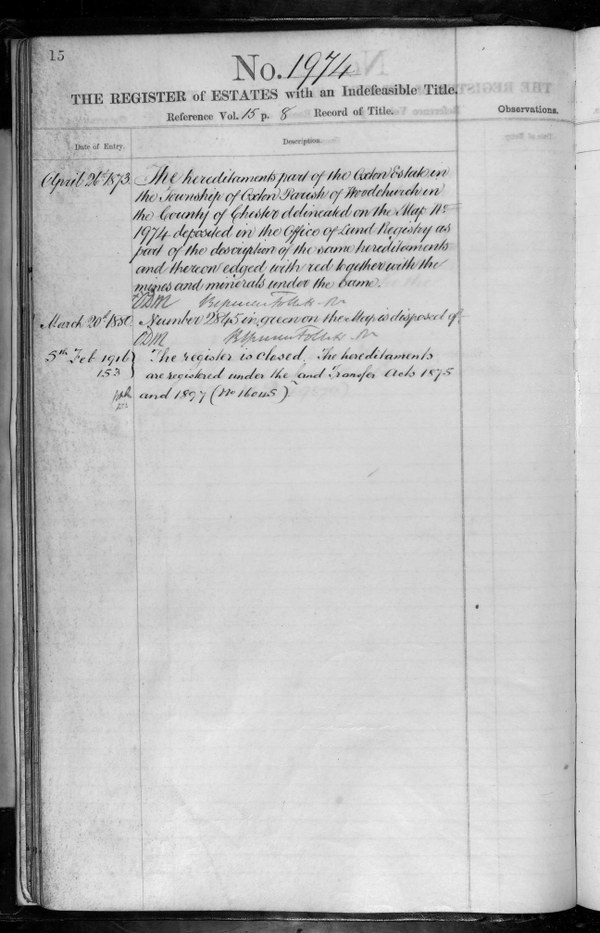 15
No. 1974
THE REGISTER of ESTATES with an Indefeasible Title.
Reference Vol. 15 p. 8 Record of Title.
Observations.
Date of Entry.
Description.
April 26th 1873. The hereditaments part of the Oxton Estate in
the Township of Oxton Parish of Woodchurch in
the County of Chester delineated on the Map No
1974 deposited in the Office of Land Registry as
part of the description of the same hereditaments
and thereon edged with red together with the
mines and minerals under the same.
March 20th 1880 Number 2845 in green on the Map is disposed of
5th Feb 1916 The register is closed. The hereditaments
153 are registered under the Land Transfer Acts 1875
and 1897 (No 16045).